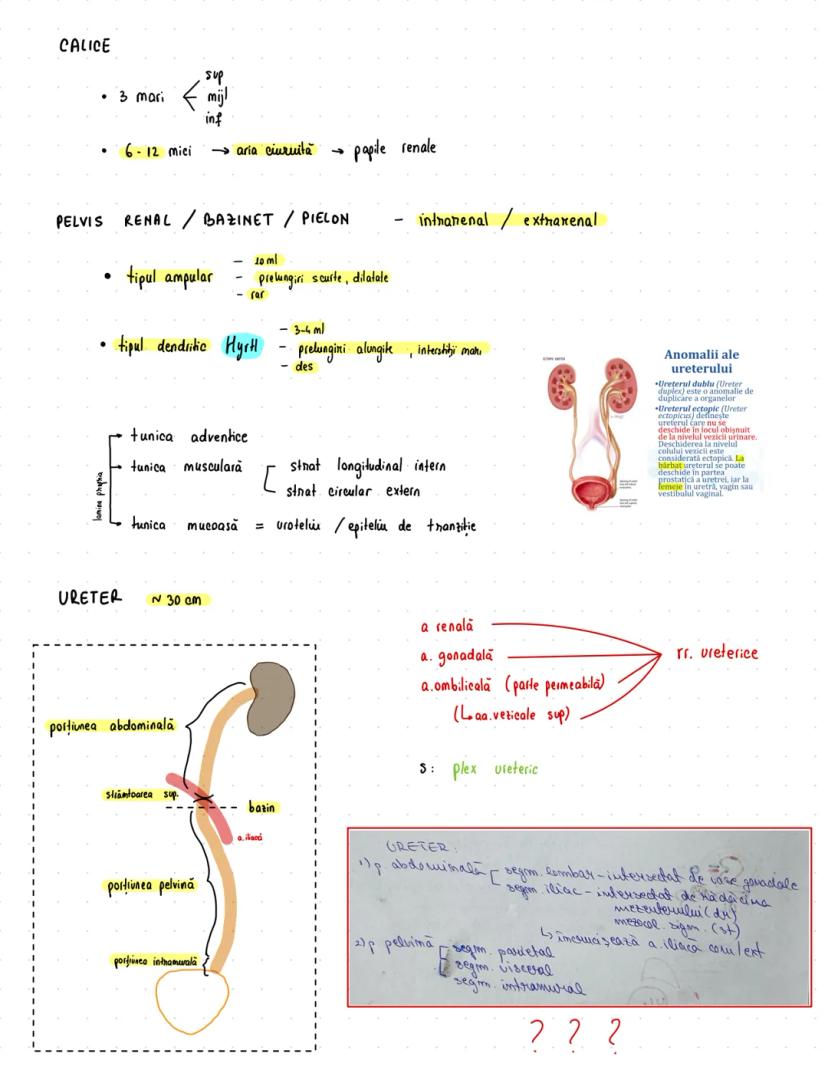 CALICE
• 3 mari < sup
mijl
inf
• 6-12 mici → aria ciuruită → papile renale
PELVIS RENAL / BAZINET / PIELON - intrarenal / extrarenal
• tipul ampular
- 10 ml
- prelungiri scurte, dilatate
- rar
• tipul dendritic Hyrtl
- 3-4 ml
- prelungiri alungite, interstiții mari
- des
lamina propria
tunica adventice
tunica musculară
strat longitudinal intern
strat circular extern
tunica mucoasă = uroteliu / epiteliu de tranziție
Anomalii ale
ureterului
•Ureterul dublu (Ureter
duplex) este o anomalie de
duplicare a organelor
•Ureterul ectopic (Ureter
ectopicus) definește
ureterul care nu se
deschide în locul obișnuit
de la nivelul vezicii urinare.
Deschiderea la nivelul
colului vezicii este
considerată ectopică. La
bărbat ureterul se poate
deschide în partea
prostatică a uretrei, iar la
femeie în uretră, vagin sau
vestibulul vaginal.
URETER ~ 30 cm
porțiunea abdominală
strâmtoarea sup.
bazin
a. iliacă
porțiunea pelvină
porțiunea intramurală
a renală
a. gonadală
a. ombilicală (parte permeabilă)
(↳ aa. vezicale sup)
rr. ureterice
S: plex ureteric
URETER:
1) p. abdominală
segm. lombar - intersectat de vase gonadale
segm. iliac - intersectat de rădăcina
mezenterului (dr)
mezocol. sigm. (st)
↳ încrucișează a. iliacă com/ext
2) p pelvină
segm. parietal
segm. visceral
segm. intramural
? ? ?